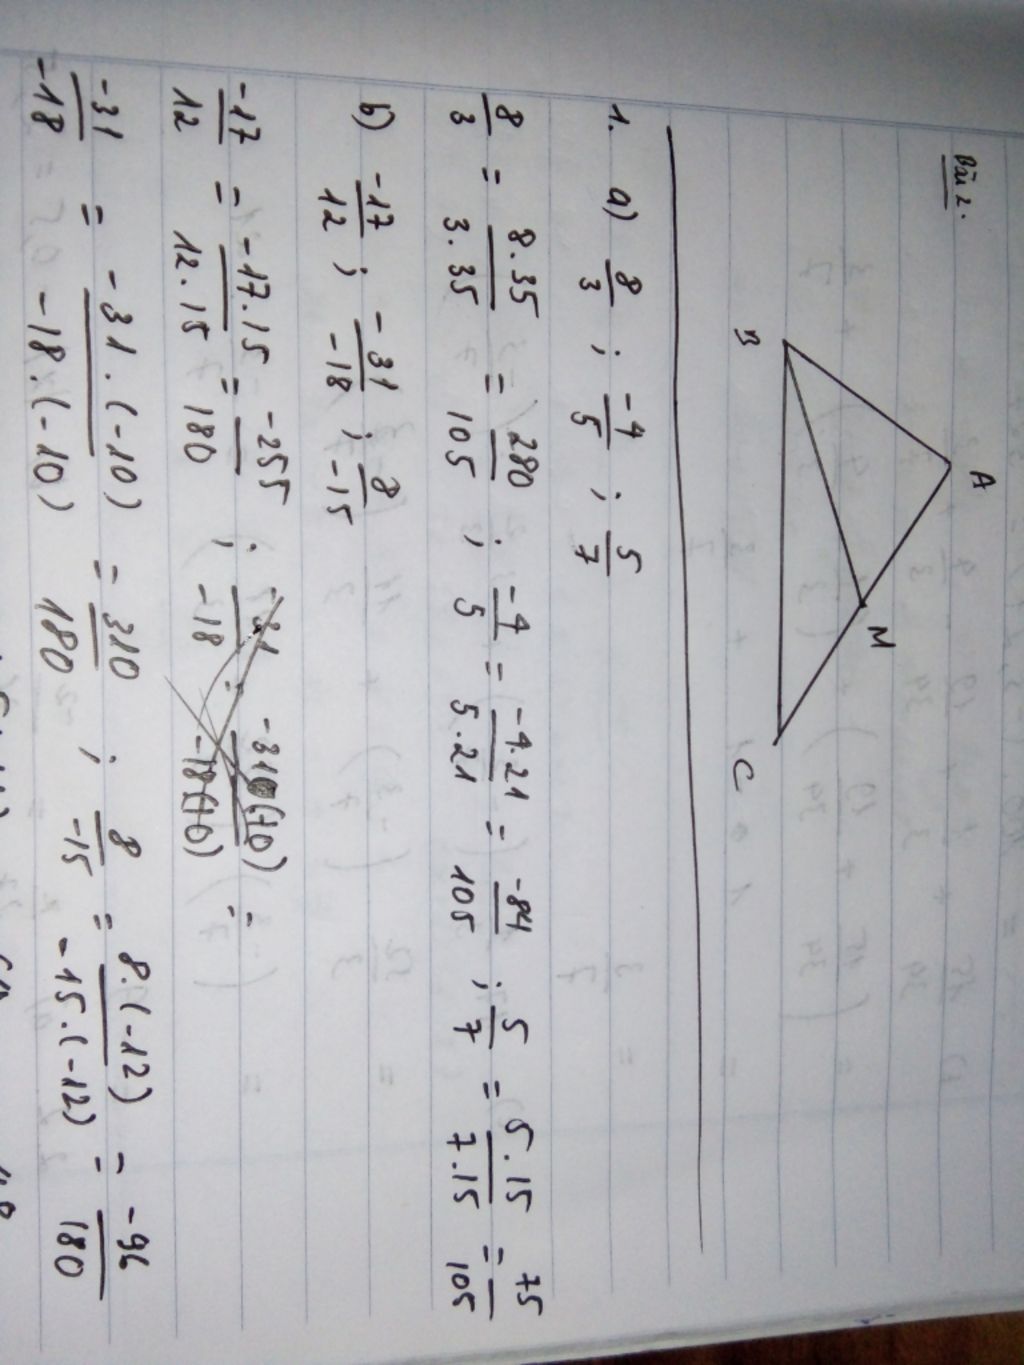 Bài 2.
A
M
B
C
1. a) 8/3 ; -4/5 ; 5/7
8/3 = 8.35/3.35 = 280/105 ; -4/5 = -4.21/5.21 = -84/105 ; 5/7 = 5.15/7.15 = 75/105
b) -17/12 ; -31/-18 ; 8/-15
-17/12 = -17.15/12.15 = -255/180 ;
-31/-18 = -31.(-10)/-18.(-10) = 310/180 ; 8/-15 = 8.(-12)/-15.(-12) = -96/180